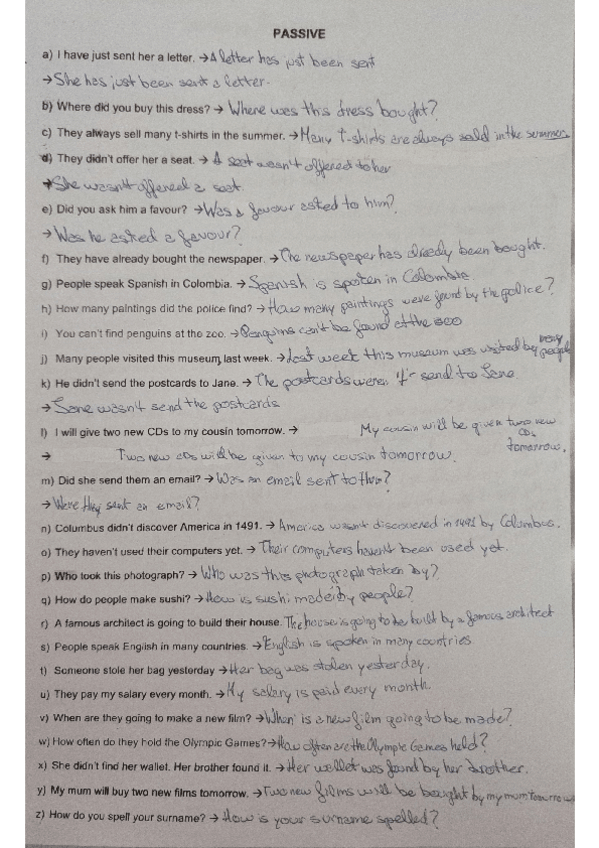 PASSIVE
a) I have just sent her a letter. → A letter has just been sent
→ She has just been sent a letter.
b) Where did you buy this dress? → Where was this dress bought?
c) They always sell many t-shirts in the summer. → Many T-shirts are always sold in the summer
d) They didn't offer her a seat. → A seat wasn't offered to her
→ She wasn't offered a seat.
e) Did you ask him a favour? → Was a favour asked to him?
→ Was he asked a favour?
f) They have already bought the newspaper. → The newspaper has already been bought.
g) People speak Spanish in Colombia. → Spanish is spoken in Colombia
h) How many paintings did the police find? → How many paintings were found by the police?
i) You can't find penguins at the zoo. → Penguins can't be found at the zoo
j) Many people visited this museum last week. → Last week this museum was visited by many people
k) He didn't send the postcards to Jane. → The postcards weren't send to Jane
→ Jane wasn't send the postcards
l) I will give two new CDs to my cousin tomorrow. → My cousin will be given two new CDs tomorrow.
→ Two new CDs will be given to my cousin tomorrow.
m) Did she send them an email? → Was an email sent to them?
→ Were they sent an email?
n) Columbus didn't discover America in 1491. → America wasn't discovered in 1491 by Columbus.
o) They haven't used their computers yet. → Their computers haven't been used yet.
p) Who took this photograph? → Who was this photograph taken by?
q) How do people make sushi? → How is sushi made by people?
r) A famous architect is going to build their house. The house is going to be built by a famous architect
s) People speak English in many countries. → English is spoken in many countries
t) Someone stole her bag yesterday → Her bag was stolen yesterday.
u) They pay my salary every month. → My salary is paid every month
v) When are they going to make a new film? → When is a new film going to be made?
w) How often do they hold the Olympic Games? → How often are the Olympic Games held?
x) She didn't find her wallet. Her brother found it. → Her wallet was found by her brother.
y) My mum will buy two new films tomorrow. → Two new films will be bought by my mum tomorrow
z) How do you spell your surname? → How is your surname spelled?